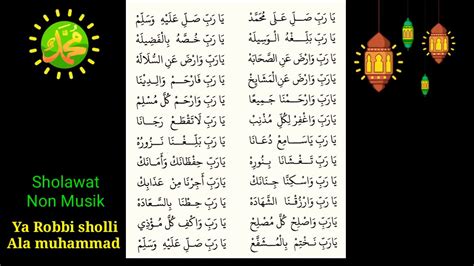 محمد
يَا رَبِّ صَلِّ عَلَى مُحَمَّدْ يَا رَبِّ صَلِّ عَلَيْهِ وَسَلِّمْ
يَا رَبِّ بَلِّغْهُ الْوَسِيلَهْ يَا رَبِّ خُصَّهُ بِالْفَضِيلَهْ
يَا رَبِّ وَارْضَ عَنِ الصَّحَابَهْ يَا رَبِّ وَارْضَ عَنِ السُّلَالَهْ
يَا رَبِّ وَارْضَ عَنِ الْمَشَايِخْ يَا رَبِّ فَارْحَمْ وَالِدِيْنَا
يَا رَبِّ وَارْحَمْنَا جَمِيعًا يَا رَبِّ وَارْحَمْ كُلَّ مُسْلِمْ
يَا رَبِّ وَاغْفِرْ لِكُلِّ مُذْنِبْ يَا رَبِّ لَاتَقْطَعْ رَجَانَا
يَا رَبِّ يَاسَامِعْ دُعَانَا يَا رَبِّ بَلِّغْنَا نَزُورُهْ
يَا رَبِّ تَغْشَانَا بِنُورِهْ يَا رَبِّ حِفْظَانَكْ وَأَمَانَكْ
يَا رَبِّ وَاسْكِنَّا جِنَانَكْ يَا رَبِّ أَجِرْنَا مِنْ عَذَابِكْ
يَا رَبِّ وَارْزُقْنَا الشَّهَادَهْ يَا رَبِّ حِطْنَا بِالسَّعَادَهْ
يَا رَبِّ وَاصْلِحْ كُلَّ مُصْلِحْ يَا رَبِّ وَاكْفِ كُلَّ مُؤْذِي
يَا رَبِّ نَخْتِمْ بِالْمُشَفَّعْ يَا رَبِّ صَلِّ عَلَيْهِ وَسَلِّمْ
Sholawat
Non Musik
Ya Robbi sholli
Ala muhammad